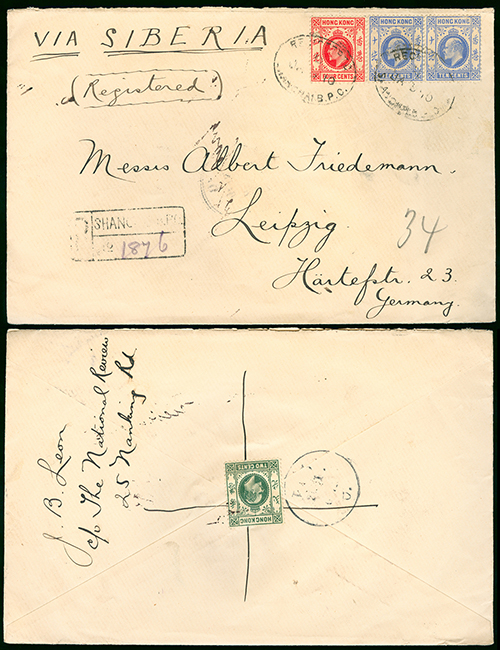 VIA SIBERIA
"Registered"
HONG KONG
FOUR CENTS
HONG KONG
TEN CENTS
HONG KONG
TEN CENTS
B.P.O.
Messrs Albert Friedemann.
Leipzig
34
Härtefstr. 23.
Germany.
No 1876
J. B. Leon
c/o The National Review
25 Nanking Rd.
TWO CENTS
HONG KONG